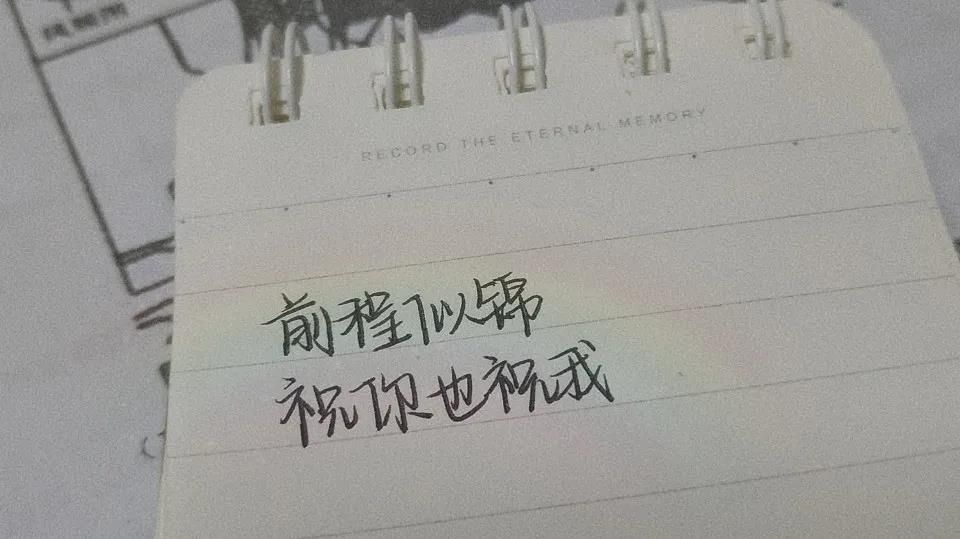 RECORD THE ETERNAL MEMORY
前程似锦
祝你也祝我